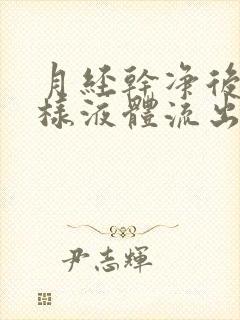 月經幹净後
樣液體流出
尹志輝